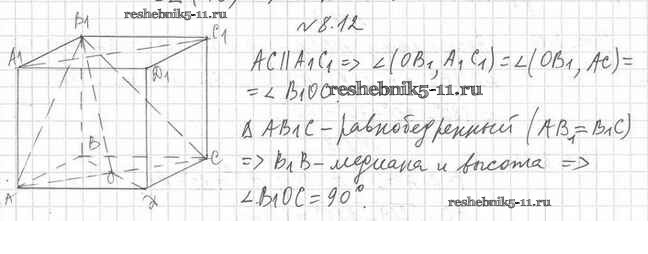 B1
reshebnik5-11.ru
C1
A1
D1
B
C
A
O
D
N 8.12
AC || A1C1 => ∠(OB1, A1C1) = ∠(OB1, AC) =
= ∠ B1OC.
reshebnik5-11.ru
Δ AB1C – равнобедренный (AB1 = B1C)
=> B1B – медиана и высота =>
∠B1OC = 90°.
reshebnik5-11.ru